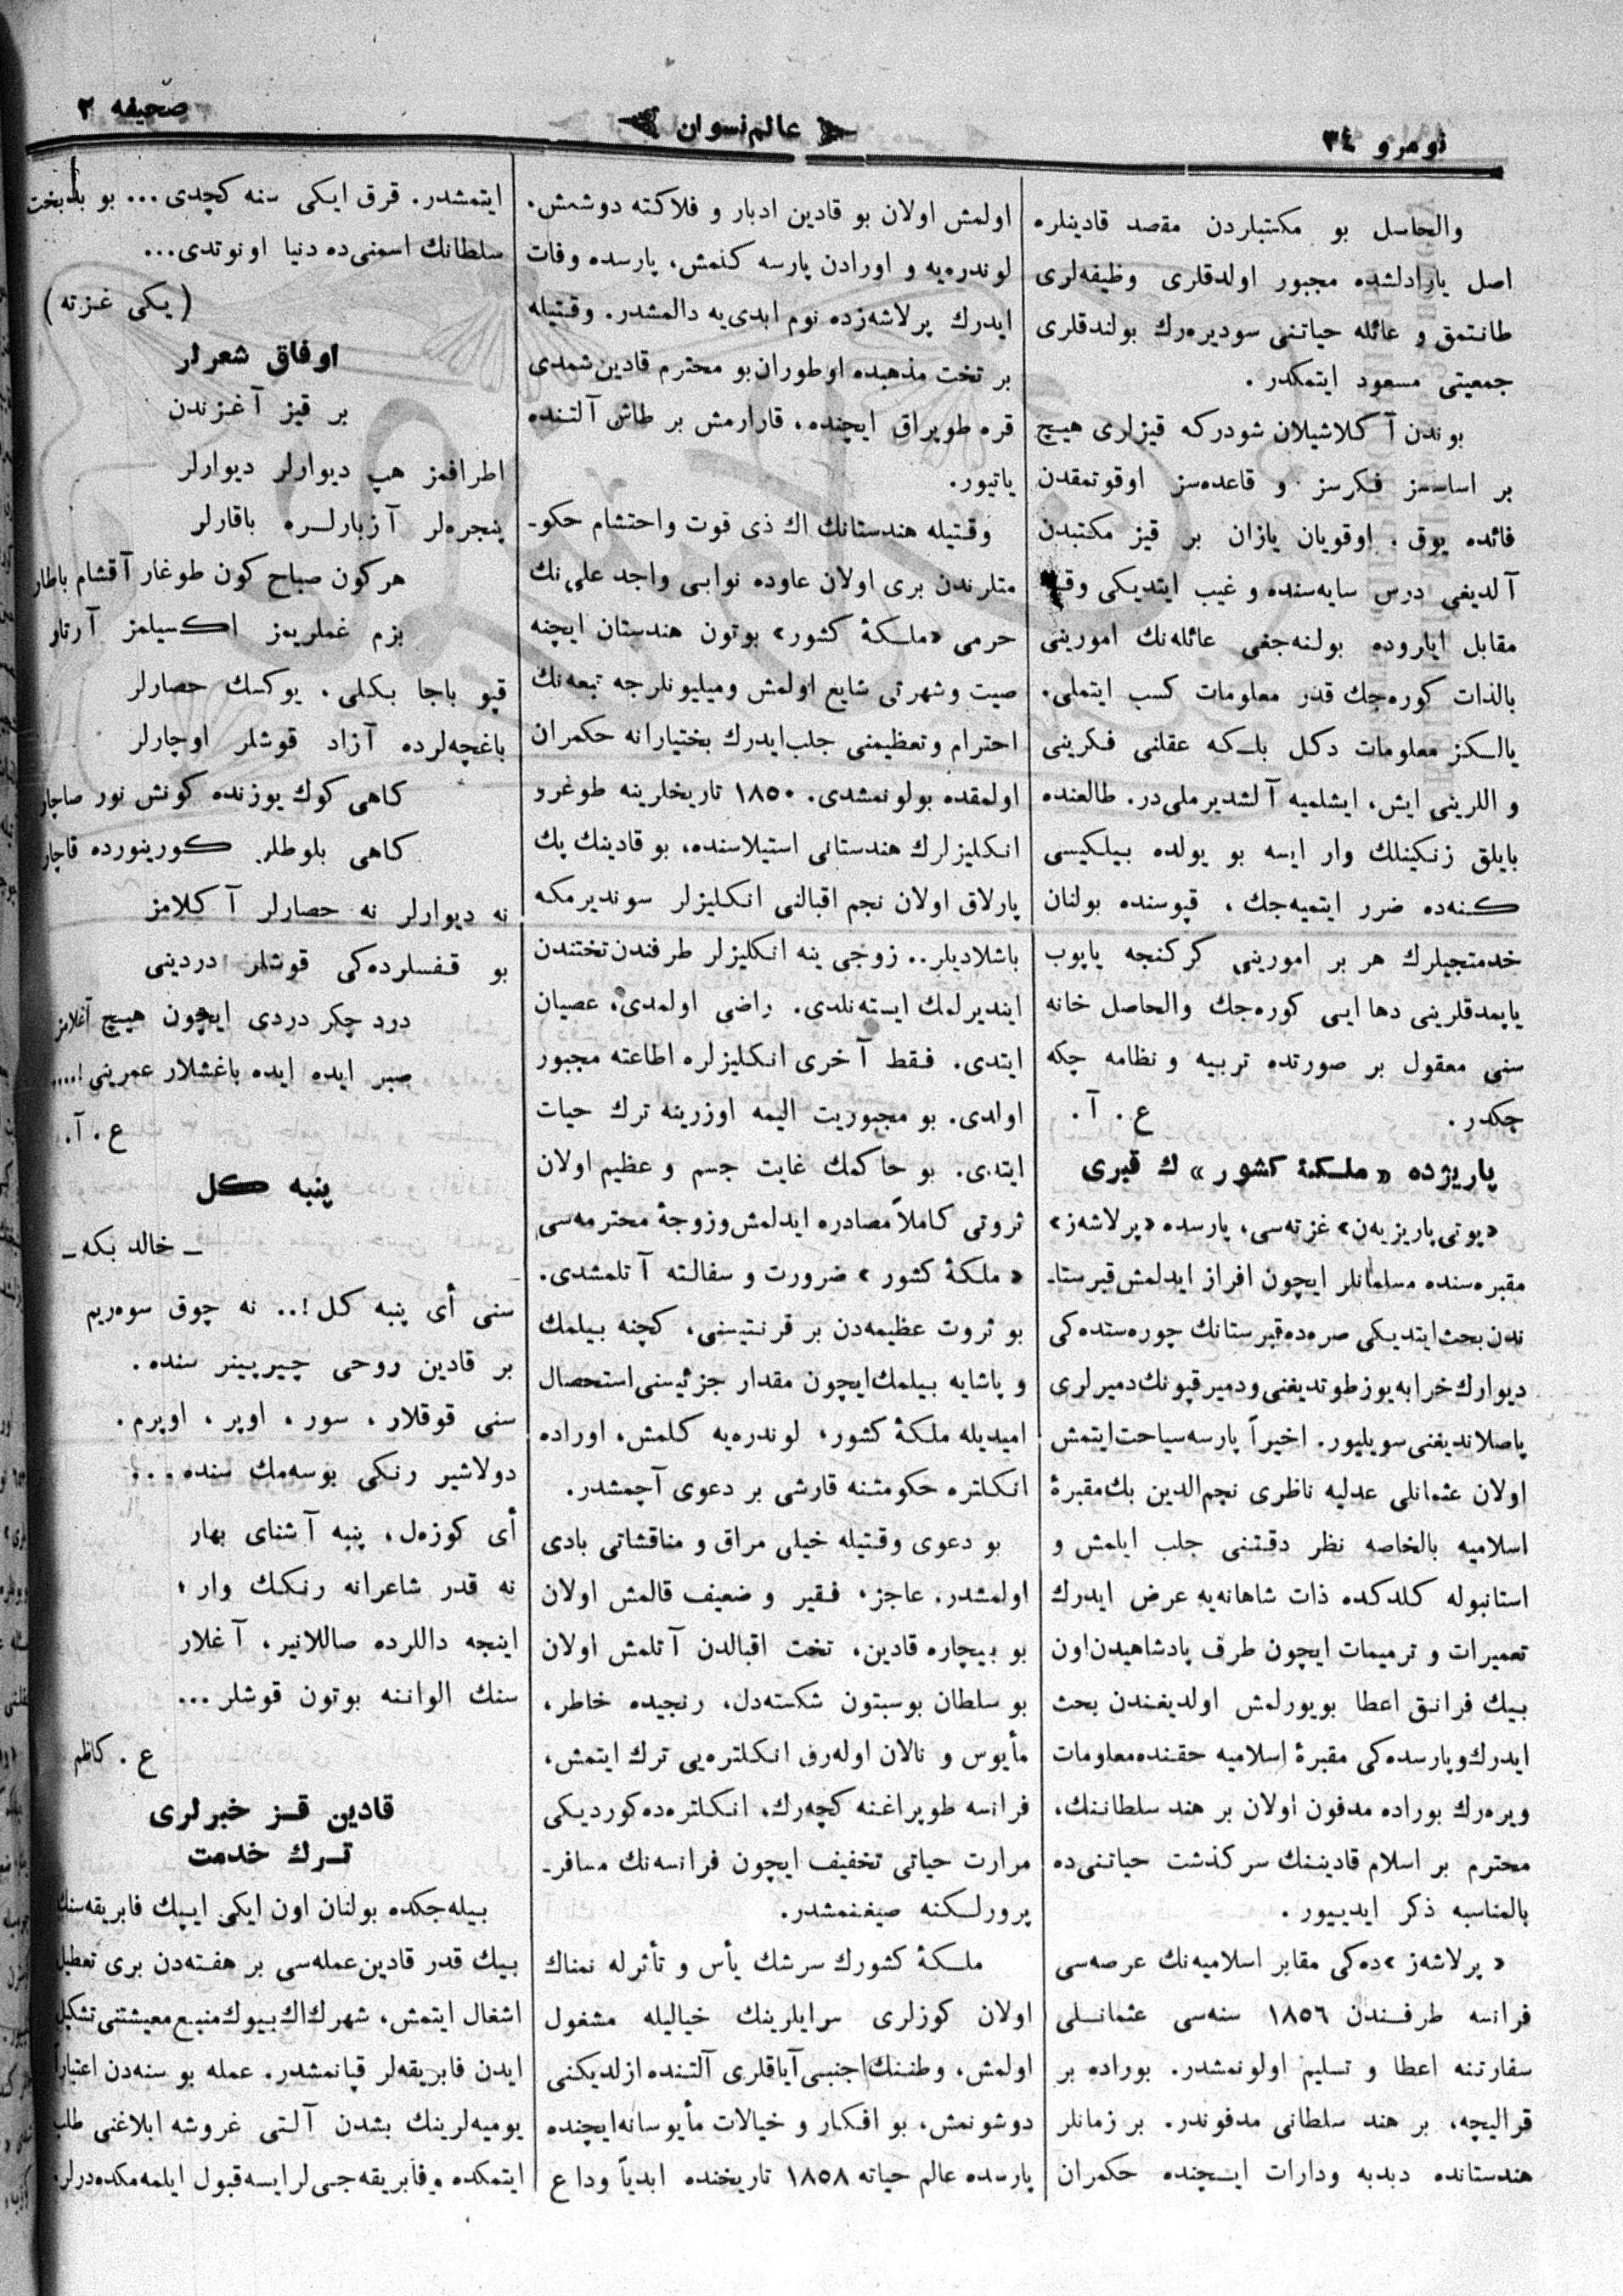 نومرو ٣٤
عالم نسوان
صحیفه ٣
والحاسل بو مکتبلردن مقصد قادینلره
اصل یارادلشده مجبور اولدقلری وظیفه‌لری
طانتمق و عائله حیاتنی سودیره‌رك بولندقلری
جمعیتی مسعود ایتمکدر .
بوندن آکلاشیلان شودرکه قیزلری هیچ
بر اساسسز فکرسز و قاعده‌سز اوقوتمقدن
فائده یوق . اوقویان یازان بر قیز مکتبدن
آلدیغی درس سایه‌سنده و غیب ایتدیکی وقته
مقابل ایلروده بولنه‌جغی عائله‌نك امورینی
بالذات کوره‌جك قدر معلومات کسب ایتملی.
یالکز معلومات دکل بلکه عقلنی فکرینی
و اللرینی ایش، ایشلمیه آلشدیرملی‌در. طالعنده
بایلق زنکینلك وار ایسه بو یولده بیلکیسی
کنه‌ده ضرر ایتمیه‌جك ، قپوسنده بولنان
خدمتجیلرك هر بر امورینی کرکنجه یاپوب
یاپمدقلرینی دها ایی کوره‌جك والحاصل خانه
سنی معقول بر صورتده تربیه و نظامه چکه
جکدر . ع . آ .
پاریژده «ملکۀ کشور» ك قبری
«پوتی پاریزیه‌ن» غزته‌سی، پارسده «پرلاشه‌ز»
مقبره‌سنده مسلمانلر ایچون افراز ایدلمش قبرستا-
ندن بحث ایتدیکی صره‌ده قبرستانك چوره‌سنده‌کی
دیوارك خرابه یوز طوتدیغنی و دمیر قپونك دمیرلری
پاصلاندیغنی سویلیور. اخیراً پارسه سیاحت ایتمش
اولان عثمانلی عدلیه ناظری نجم‌الدین بك مقبرۀ
اسلامیه بالخاصه نظر دقتنی جلب ایلمش و
استانبوله کلدکده ذات شاهانه‌یه عرض ایدرك
تعمیرات و ترمیمات ایچون طرف پادشاهیدن اون
بیك فرانق اعطا بویورلمش اولدیغندن بحث
ایدرك و پارسده‌کی مقبرۀ اسلامیه حقنده معلومات
ویره‌رك بوراده مدفون اولان بر هند سلطاننك،
محترم بر اسلام قادیننك سرکذشت حیاتنی‌ده
بالمناسبه ذکر ایدییور .
«پرلاشه‌ز» ده‌کی مقابر اسلامیه‌نك عرصه‌سی
فرانسه طرفندن ١٨٥٦ سنه‌سی عثمانلی
سفارتنه اعطا و تسلیم اولونمشدر. بوراده بر
قرالیچه، بر هند سلطانی مدفوندر. بر زمانلر
هندستانده دبدبه ودارات ایچنده حکمران
اولمش اولان بو قادین ادبار و فلاکته دوشمش.
لوندره‌یه و اورادن پارسه کتمش، پارسده وفات
ایدرك پرلاشه‌زده نوم ابدی‌یه دالمشدر. وقتیله
بر تخت مذهبده اوطوران بو محترم قادین شمدی
قره طوپراق ایچنده، قارارمش بر طاش آلتنده
یاتیور.
وقتیله هندستانك اك ذی قوت واحتشام حکو-
متلرندن بری اولان عاوده نوابی واجد علی‌نك
حرمی «ملکۀ کشور» بوتون هندستان ایچنه
صیت وشهرتی شایع اولمش ومیلیونلرجه تبعه‌نك
احترام وتعظیمنی جلب ایدرك بختیارانه حکمران
اولمقده بولونمشدی. ١٨٥٠ تاریخلرینه طوغرو
انکلیزلرك هندستانی استیلاسنده، بو قادینك پك
پارلاق اولان نجم اقبالنی انکلیزلر سوندیرمکه
باشلادیلر.. زوجی ینه انکلیزلر طرفندن تختندن
ایندیرلمك ایسته‌نلدی. راضی اولمدی، عصیان
ایتدی. فقط آخری انکلیزلره اطاعته مجبور
اولدی. بو مجبوریت الیمه اوزرینه ترك حیات
ایتدی. بو حاکمك غایت جسم و عظیم اولان
ثروتی کاملاً مصادره ایدلمش وزوجۀ محترمه‌سی
«ملکۀ کشور» ضرورت و سفالته آتلمشدی.
بو ثروت عظیمه‌دن بر قرنتیسنی، کچنه بیلمك
و یاشایه بیلمك ایچون مقدار جزئیسنی استحصال
امیدیله ملکۀ کشور، لوندره‌یه کلمش، اوراده
انکلتره حکومتنه قارشی بر دعوی آچمشدر.
بو دعوی وقتیله خیلی مراق و مناقشاتی بادی
اولمشدر. عاجز، فقیر و ضعیف قالمش اولان
بو بیچاره قادین، تخت اقبالدن آتلمش اولان
بو سلطان بوسبتون شکسته‌دل، رنجیده خاطر،
مأیوس و نالان اوله‌رق انکلتره‌یی ترك ایتمش،
فرانسه طوپراغنه کچه‌رك، انکلتره‌ده کوردیکی
مرارت حیاتی تخفیف ایچون فرانسه‌نك مسافر-
پرورلکنه صیغنمشدر.
ملکۀ کشورك سرشك یأس و تأثرله نمناك
اولان کوزلری سرایلرینك خیالیله مشغول
اولمش، وطننك اجنبی آیاقلری آلتنده ازلدیکنی
دوشونمش، بو افکار و خیالات مأیوسانه ایچنده
پارسده عالم حیاته ١٨٥٨ تاریخنده ابدیاً وداع
ایتمشدر. قرق ایکی سنه کچدی... بو بدبخت
سلطانك اسمنی‌ده دنیا اونوتدی...
(یکی غزته)
اوفاق شعرلر
بر قیز آغزندن
اطرافمز هپ دیوارلر دیوارلر
پنجره‌لر آزبارلره باقارلر
هرکون صباح کون طوغار آقشام باطار
بزم غملریمز اکسیلمز آرتار
قپو باجا بکلی . یوکسك حصارلر
باغچه‌لرده آزاد قوشلر اوچارلر
کاهی کوك یوزنده کونش نور صاچار
کاهی بلوطلر کورینورده قاچار
نه دیوارلر نه حصارلر آکلامز
بو قفسلرده‌کی قوشلر دردینی
درد چکر دردی ایچون هیچ آغلامز
صبر ایده ایده باغشلار عمرینی !....
ع . آ.
پنبه کل
ـ خالد بکه ـ
سنی أی پنبه کل !.. نه چوق سوه‌ریم
بر قادین روحی چیرپینر سنده.
سنی قوقلار ، سور ، اوپر ، اوپرم .
دولاشیر رنکی بوسه‌مك سنده...
أی کوزه‌ل، پنبه آشنای بهار
نه قدر شاعرانه رنکك وار ؛
اینجه داللرده صاللانیر، آغلار
سنك الواننه بوتون قوشلر ...
ع . کاظم
قادین قز خبرلری
ترك خدمت
بیله‌جکده بولنان اون ایکی ایپك فابریقه‌سنك
بیك قدر قادین عمله‌سی بر هفته‌دن بری تعطیل
اشغال ایتمش، شهرك اك بیوك منبع معیشتنی تشکیل
ایدن فابریقه‌لر قپانمشدر. عمله بو سنه‌دن اعتباراً
یومیه‌لرینك بشدن آلتی غروشه ابلاغنی طلب
ایتمکده و فابریقه‌جی‌لر ایسه قبول ایلمه‌مکده‌درلر.